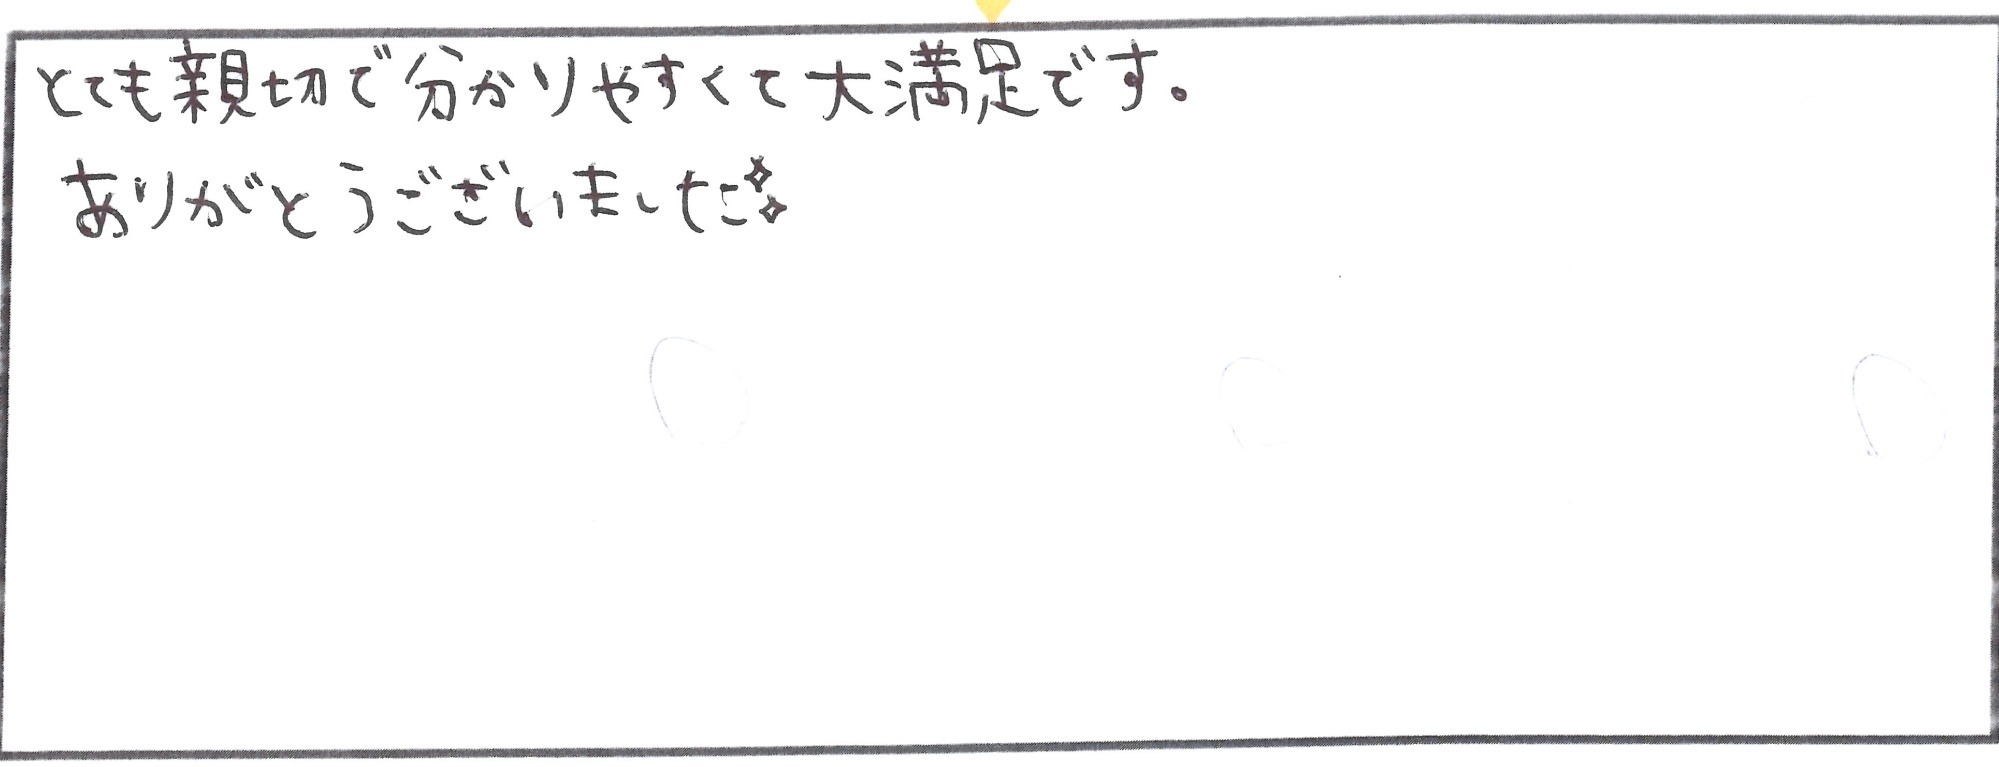 とても親切で分かりやすくて大満足です。
ありがとうございました✨